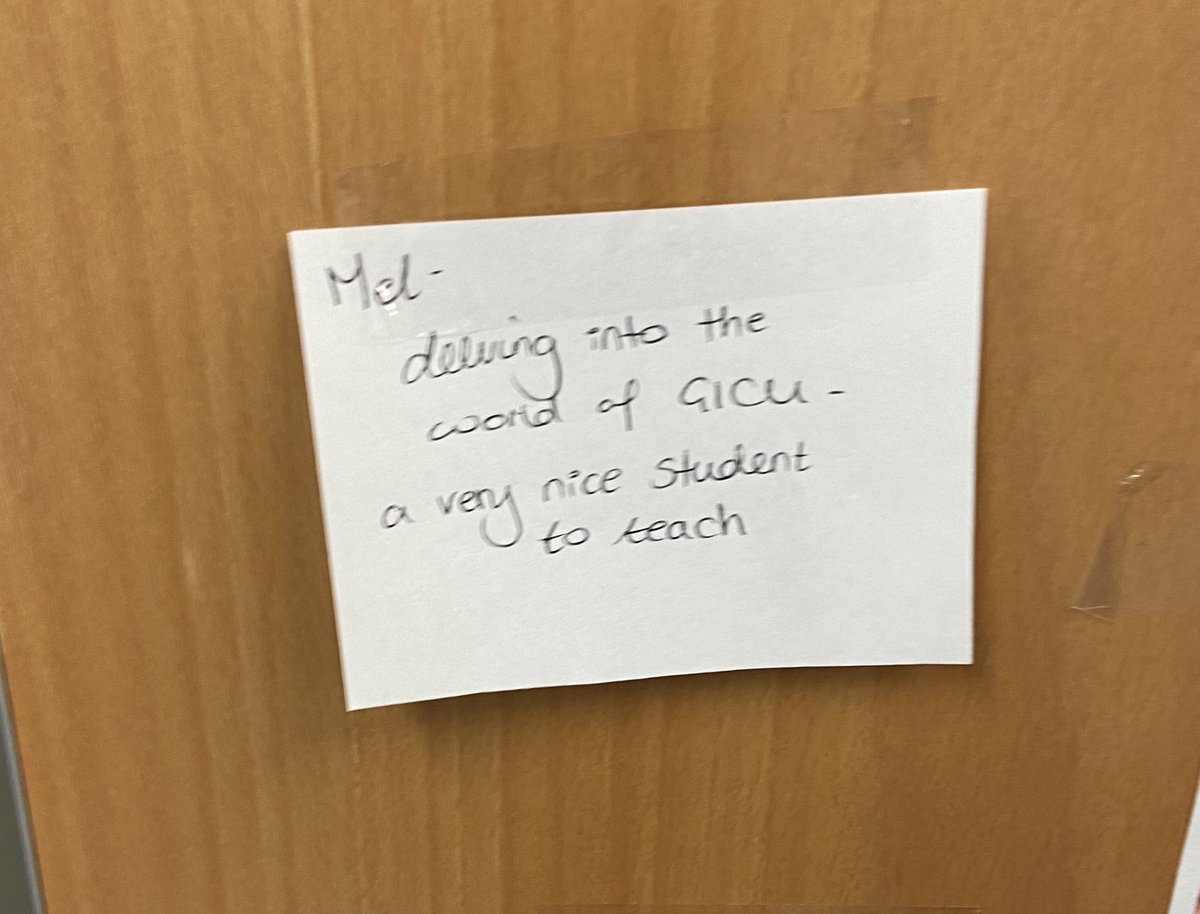 Mel-
delving into the
world of GICU -
a very nice student
to teach